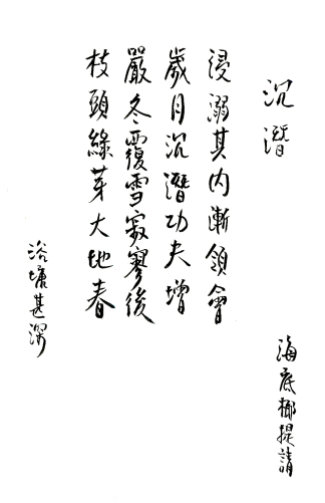 沉潛
海底撈提請
浸溺其内漸領會
歲月沉潛功夫增
嚴冬覆雪寂寥後
枝頭綠芽大地春